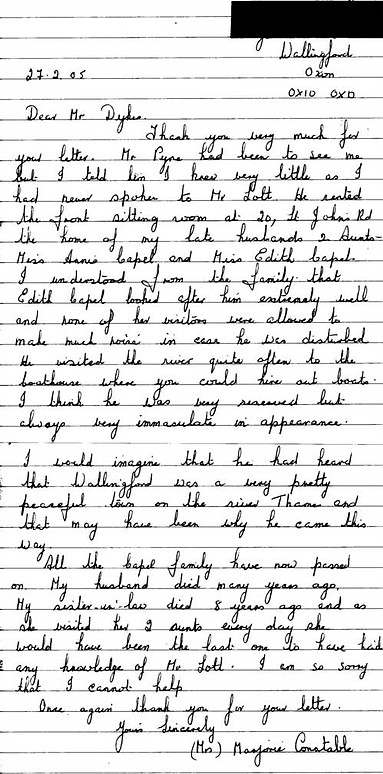 Wallingford
Oxon
27.2.05
OX10 0XD
Dear Mr Dykes.
Thank you very much for
your letter. Mr Pyne had been to see me
but I told him I knew very little as I
had never spoken to Mr Lott. He rented
the front sitting room at 20, St John's Rd
the home of my late husbands 2 Aunts -
Miss Annie Capel and Miss Edith Capel.
I understood from the family that
Edith Capel looked after him extremely well
and none of her visitors were allowed to
make much noise in case he was disturbed
He visited the river quite often to the
boathouse where you could hire out boats.
I think he was very reserved but
always very immaculate in appearance.
I would imagine that he had heard
that Wallingford was a very pretty
peaceful town on the river Thame and
that may have been why he came this
way.
All the Capel family have now passed
on. My husband died many years ago,
My sister-in-law died 8 years ago and as
she visited her 2 aunts every day she
would have been the last one to have had
any knowledge of Mr Lott. I am so sorry
that I cannot help
Once again thank you for your letter.
Yours Sincerely
(Mrs) Marjorie Constable